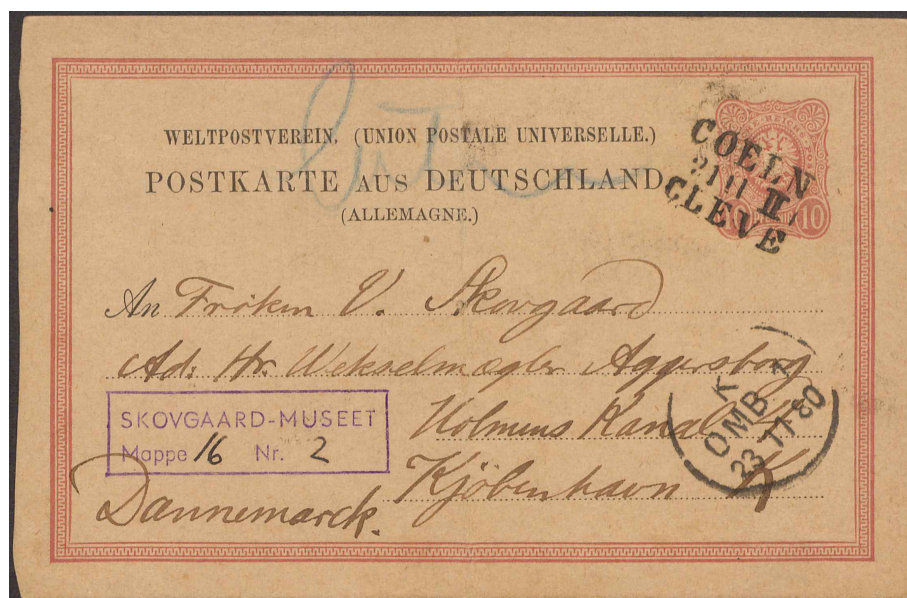 WELTPOSTVEREIN. (UNION POSTALE UNIVERSELLE.)
POSTKARTE AUS DEUTSCHLAND
(ALLEMAGNE.)
COELN
21 11 II
CLEVE
10
An Fröken V. Skovgaard
Ad: Hr. Wekselmægler Aggersborg
Holmens Kanal
Kjöbenhavn K
Dannemarck.
SKOVGAARD-MUSEET
Mappe 16 Nr. 2
K
OMB 1
23 11 80